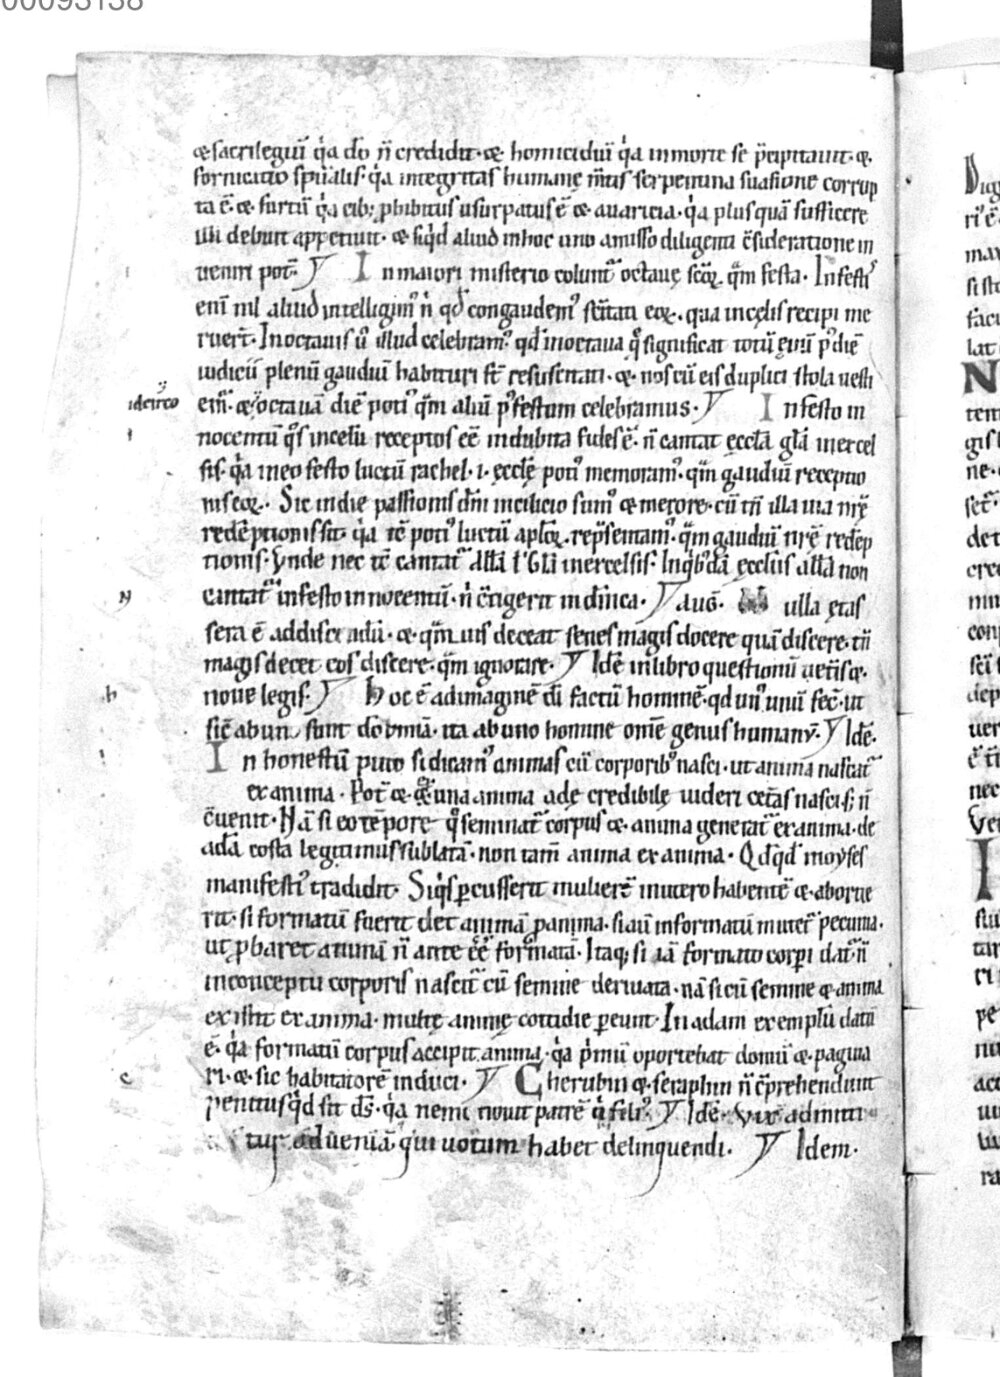 00093138
& sacrilegiū q̇a do n̄ credidit · & homicidiū q̇a in morte se p̄cipitauit · &
fornicatio spūalis · q̇a integritas humanę m̄tis serpentina suasione corrup
ta ē · & furtū q̇a cib; ꝓhibitus usurpatus ē & auaricia · q̇a plus quā sufficere
illi debuit appetiuit · & siq̇d aliud in hoc uno amisso diligenti c̄sideratione in
ueniri pot̄ · I n maiori misterio colunt᷑ octauę scōꝝ q̄m festa · In festis
enī nl̄ aliud intelligim᷒ n̄ qd̄ congaudem᷒ sc̄itati eoꝝ · qua in cęlis recipi me
ruert̄ · In octauis u᷒ illud celebram᷒ qd̄ in octaua q̇ significat totū ęuū p᷒ diē
iudicii plenū gaudiū habituri st̄ resuscitati · & nos cū eis duplici stola uesti
idcirco em᷒ · & octauā diē poti᷒ q̄m aliū p᷒ festum celebramus · I n festo in
nocentū q̇s in celū receptos eē indubita fides ē · n̄ cantat ęccl̄a gl̄a in excel
sis · q̇a in eo festo luctū rachel · i · ęccl̄ę poti᷒ memoram᷒ · q̄m gaudiū receptio
nis eoꝝ · Sic in die passionis dn̄i in cilicio sum᷒ & merore · cū tn̄ illa uia nr̄ę
redēptionis sit · q̇a tē poti᷒ luctū apl̄oꝝ rep̄sentam᷒ · q̄m gaudiū nr̄ę redēp
tionis · Vnde nec tē cantat᷑ all̄a l̓ Gl̄a in excelsis · In q̇b᷒dā ęccl̄iis all̄a non
N cantat᷑ in festo innocentiū · n̄ c̄tigerit in dn̄ica · Aug̅ · ulla ętas
sera ē addiscendū · & q̄m uis deceat senes magis docere quā discere · tn̄
magis decet eos discere · q̄m ignorare · Idē in libro questionū uet̄is &
h nouę legis · H oc ē ad imaginē dī factū hominē · qd un᷒ unū fec̄ · ut
sic̄ ab uno sunt do omnia · ita ab uno homine om̄e genus humanū · Idē ·
I n honestū puto si dicam᷒ animas cū corporib᷒ nasci · ut anima nascat᷑
ex anima · Pot̄ & una anima adę credibilę uideri cet̄as nasci · s; n̄
c̄uenit · Nā si eo tēpore q̇ seminat᷑ corpus & anima generat᷑ ex anima · de
adā costa legitimus sublatā · non tam̄ anima ex anima · Qd̄ qd̄ moyses
manifesti᷒ tradidit · Siq̇s ꝑcusserit mulierē in utero habentē & abortie
rit · si formatū fuerit det animā ꝓ anima · si aū informatū mutet᷑ pecunia ·
ut ꝓbaret animā n̄ ante eē formatā · Itaq; si iā formato corpi dat᷑ · n̄
in conceptu corporis nascit᷑ cū semine deriuata · nā si cū semine & anima
existit ex anima · multę animę cottidie ꝑeunt · In adam exemplū datū
ē · q̇a formatū corpus accipit anima · q̇a p̄mū oportebat domū & pagina
c ri · & sic habitatorē induci · C herubin & seraphin n̄ c̄prehendunt
penitus q̇d sit ds̄ · q̇a nemi nouit patrē q̇ fili᷒ · Idē · Vix admitti
tur ad ueniā · qui uotum habet delinquendi · Idem ·